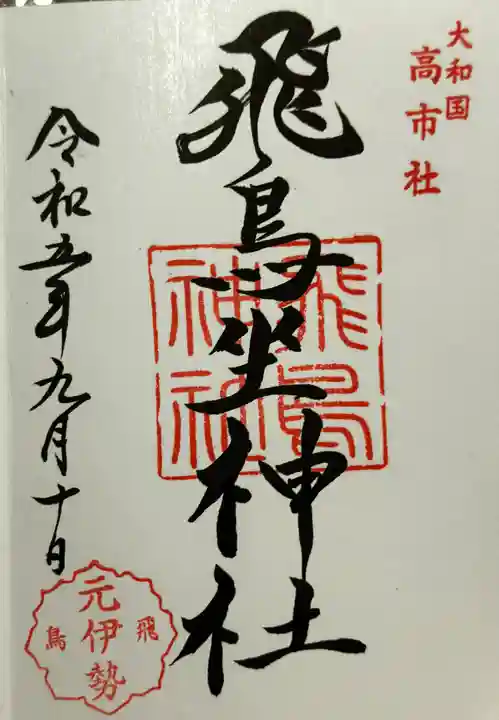 大和国
高市社
飛鳥坐神社
飛鳥
神社
令和五年九月十日
飛鳥
元伊勢